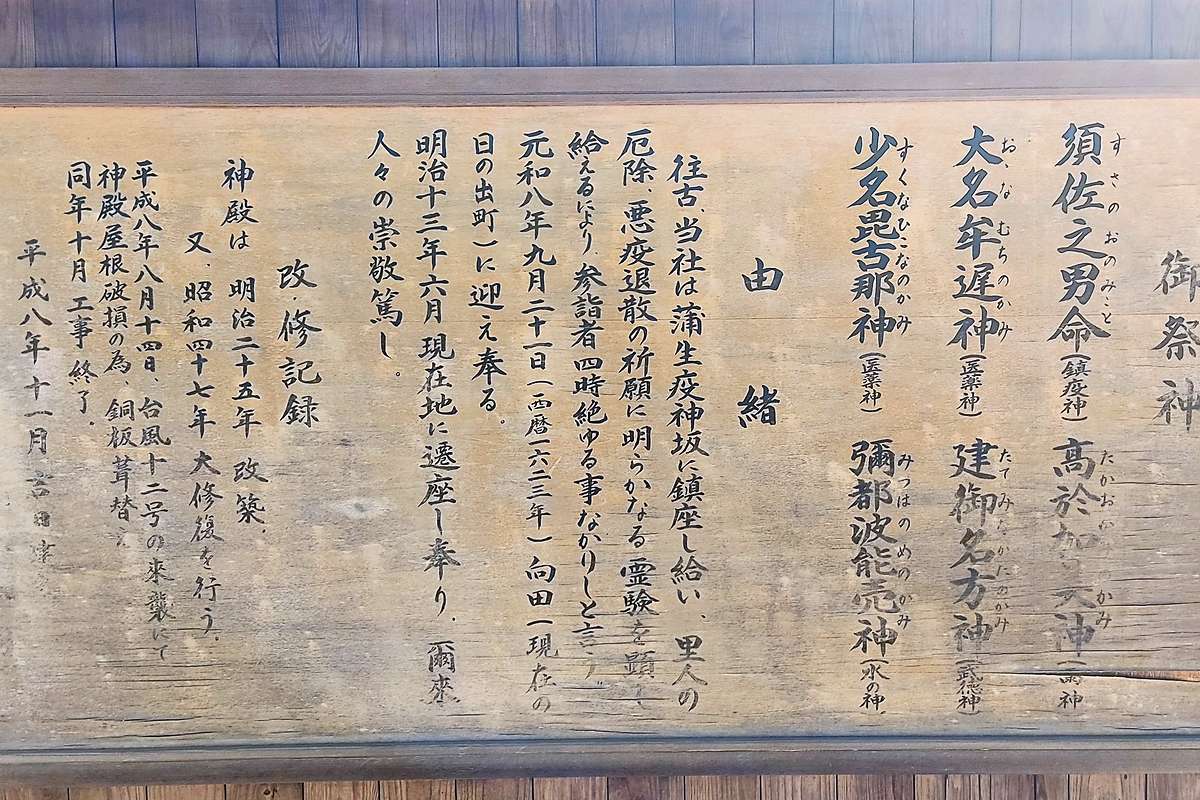 御祭神
須佐之男命(鎮疫神) 高於加 大神(雨神
すさのおのみこと たかおか かみ
大名牟遅神(医薬神) 建御名方神(武徳神)
おゝなむちのかみ たてみなかたのかみ
少名毘古那神(医薬神) 彌都波能売神(水の神)
すくなひこなのかみ みつはのめのかみ
由緒
往古、当社は蒲生疫神坂に鎮座し給い、里人の
厄除、悪疫退散の祈願に明らかなる霊験を顕し
給えるにより参詣者四時絶ゆる事なかりしと言う。
元和八年九月二十一日(西暦一六二三年)向田(現在の
日の出町)に迎え奉る。
明治十三年六月現在地に遷座し奉り、爾來
人々の崇敬篤し。
改・修記録
神殿は 明治二十五年 改築、
又、昭和四十七年 大修復を行う。
平成八年八月十四日、台風十二号の来襲にて
神殿屋根破損の為、銅板葺替え
同年十月 工事終了。
平成八年十一月吉日